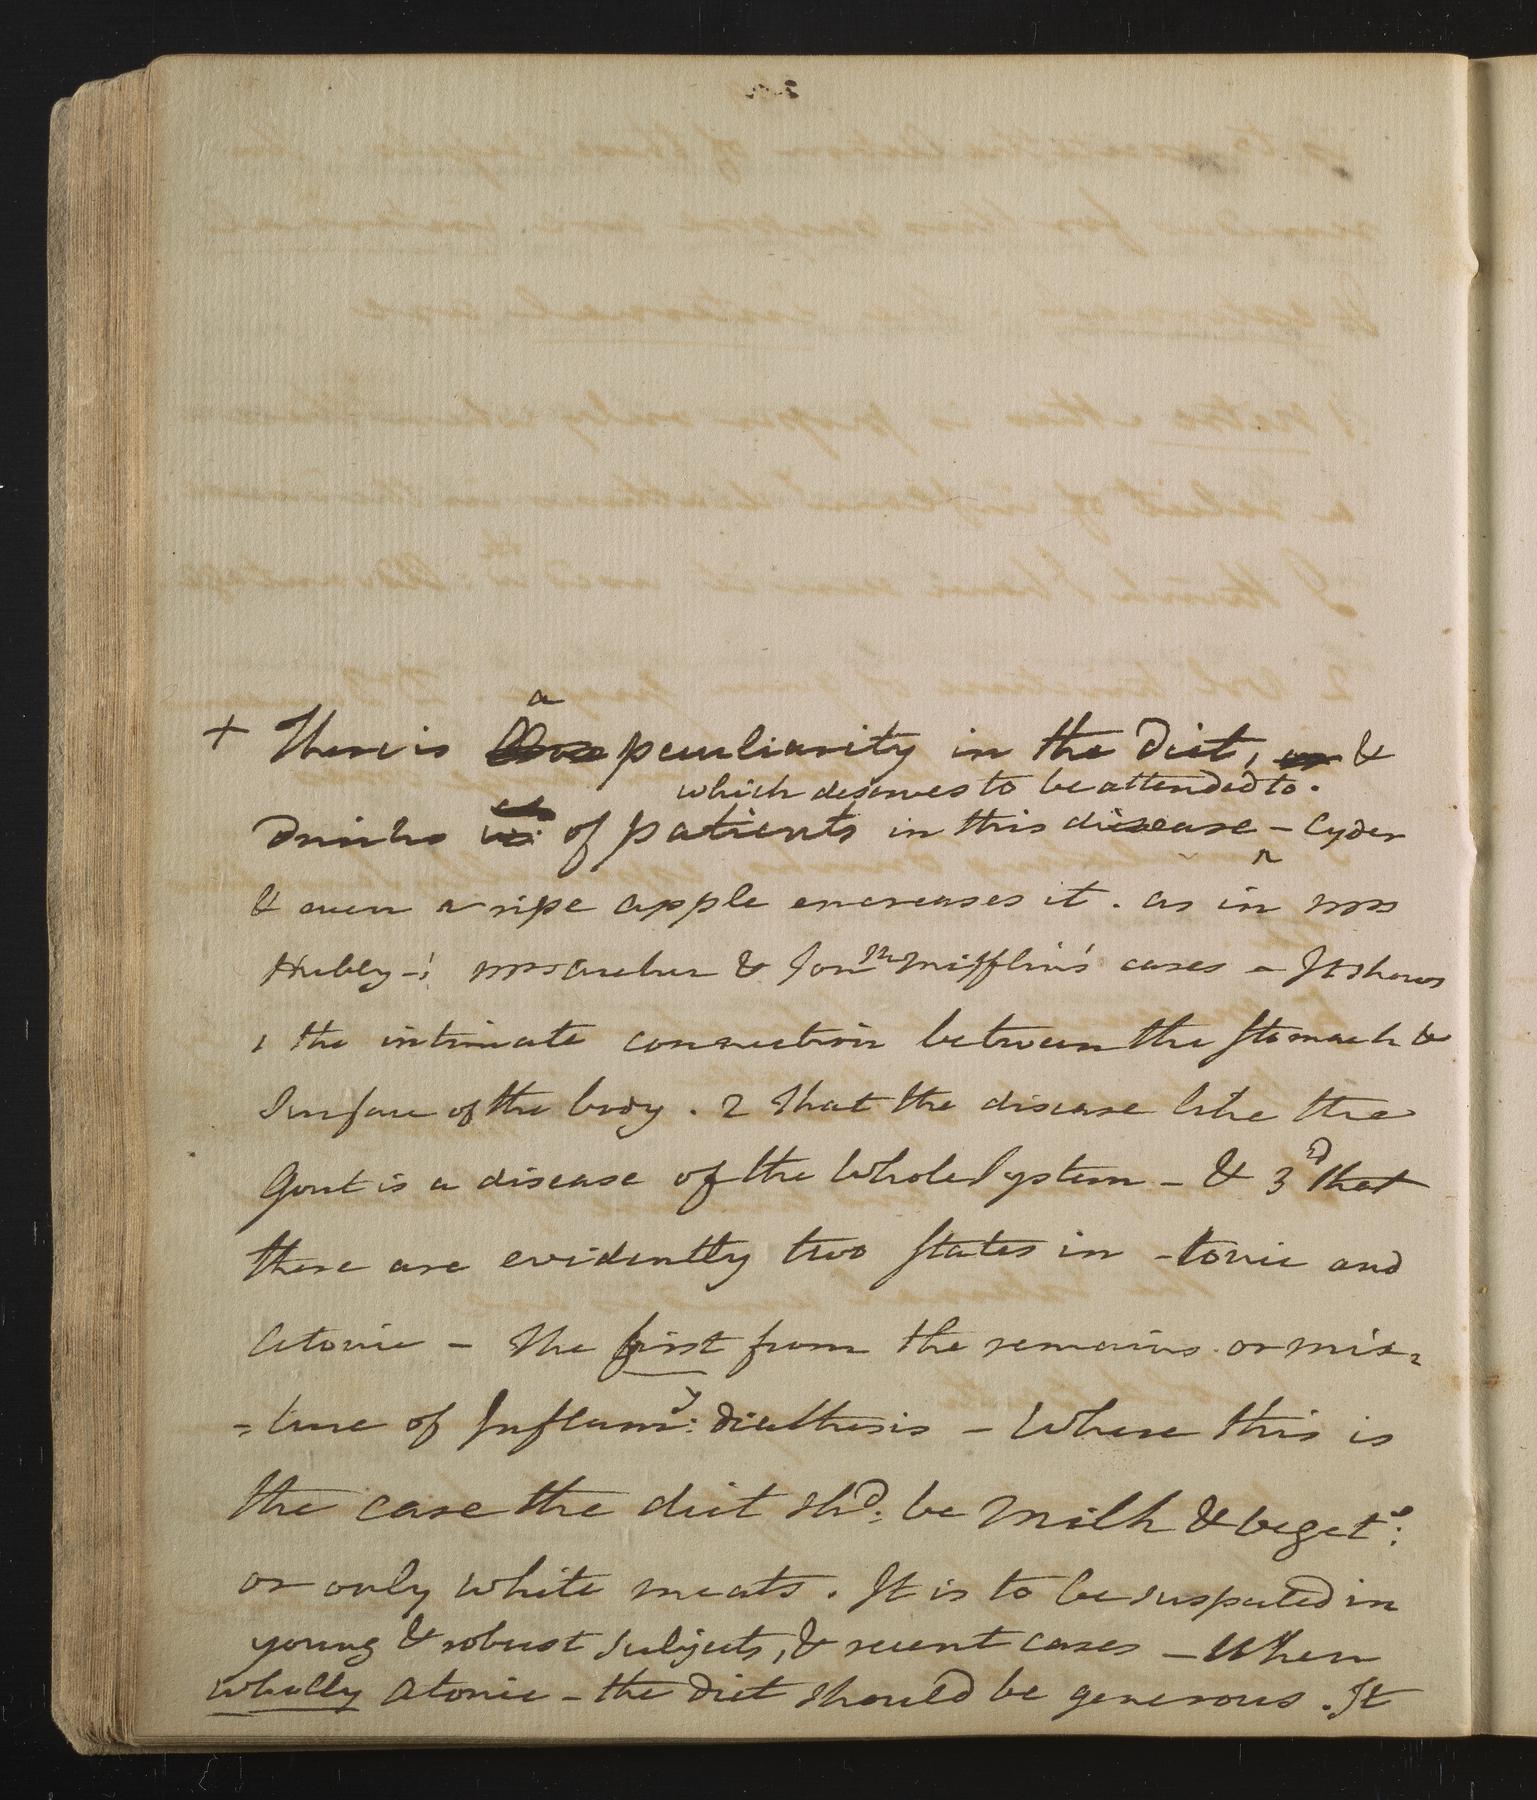 a
+ There is peculiarity in the diet, &
which deserves to be attended to.
drinks of patients in this disease – Cyder
& even a ripe apple encreases it. as in mrs
Hubley –! mrs & Jonn Mifflin's cases – It shows
1 the intimate connection between the stomach &
Surface of the body. 2 that the disease like the
Gout is a disease of the whole System – & 3d that
there are evidently two states in – tonic and
Atonic – The first from the remains or mix=
=ture of Inflamy: diathesis – Where this is
the case the diet shd: be milk & vegets:
or only white meats. It is to be suspected in
young & robust subjects, & recent cases – When
wholly atonic – the diet should be generous. It